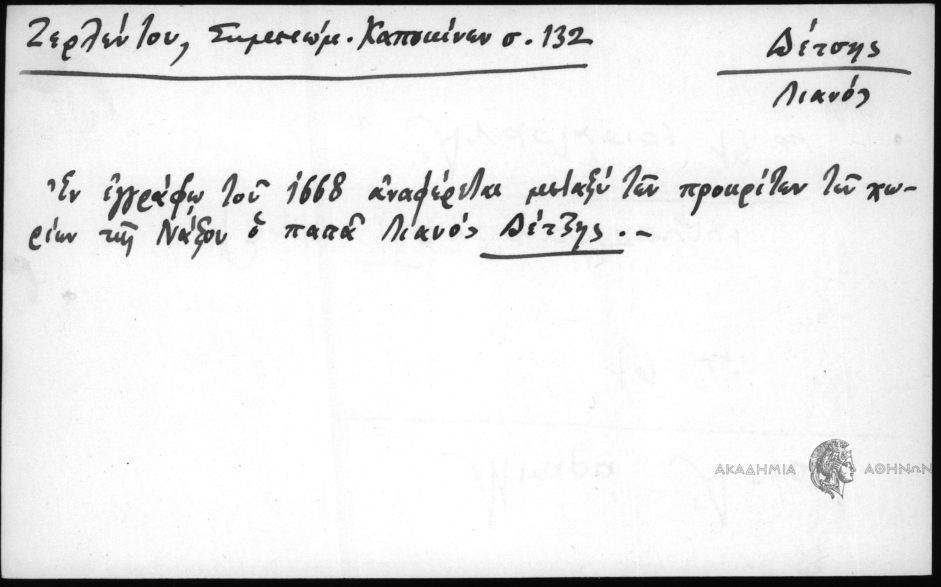 Ζερλέντου, Σημειώμ. Καπουκίνων σ. 132
Δέτσης
Λιανός
Ἐν ἐγγράφῳ τοῦ 1668 ἀναφέρεται μεταξὺ τῶν προκρίτων τῶν χω-
ρίων τῆς Νάξου ὁ παπᾶ Λιανός Δέτζης. -
ΑΚΑΔΗΜΙΑ ΑΘΗΝΩΝ